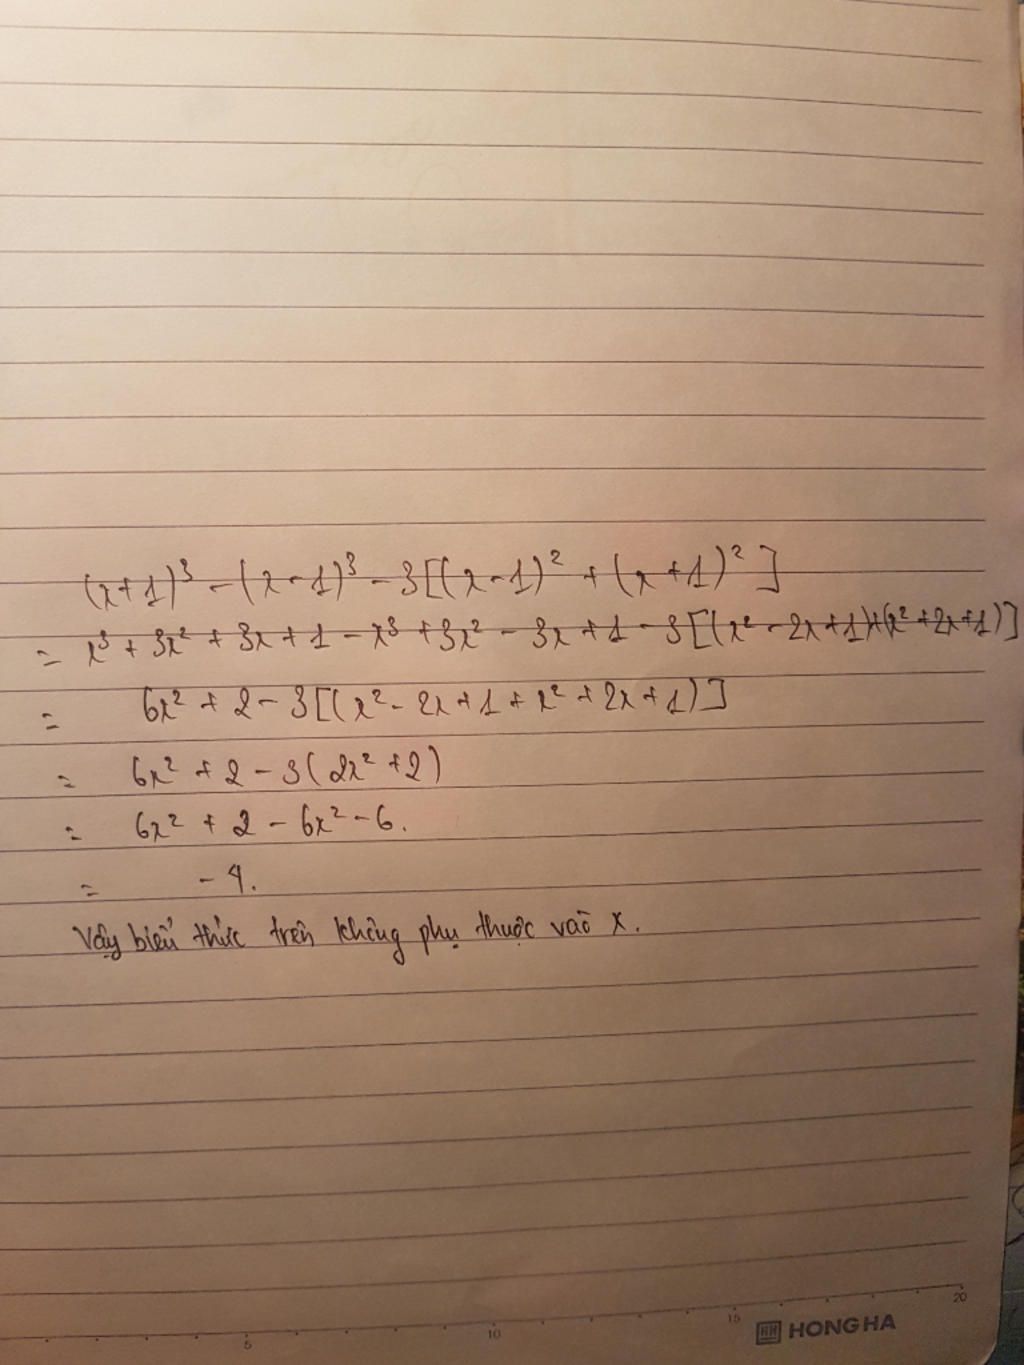 (x+1)³ - (x-1)³ - 3[(x-1)² + (x+1)²]
= x³ + 3x² + 3x + 1 - x³ + 3x² - 3x + 1 - 3[(x² - 2x + 1)+(x² + 2x + 1)]
= 6x² + 2 - 3[(x² - 2x + 1 + x² + 2x + 1)]
= 6x² + 2 - 3(2x² + 2)
= 6x² + 2 - 6x² - 6.
= -4.
Vậy biểu thức trên không phụ thuộc vào x.
5 10 15 20
HH HONG HA